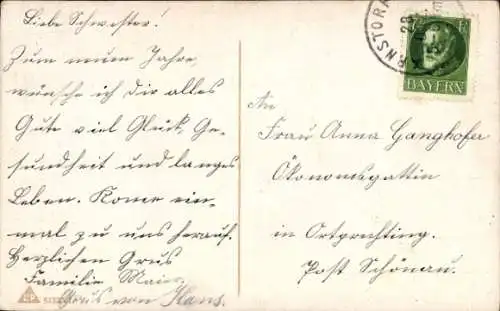 Liebe Schwester!
Zum neuen Jahre,
wünsche ich Dir alles
Gute viel Glück, Ge-
sundheit und langes
Leben. Kome ein-
mal zu uns herauf.
Herzlichen Grus
Familie Maier.
Grus von Hans.
BAYERN
An
Frau Anna Ganghofer
Ökonomsgattin
in Ortprechting.
Post Schönau.